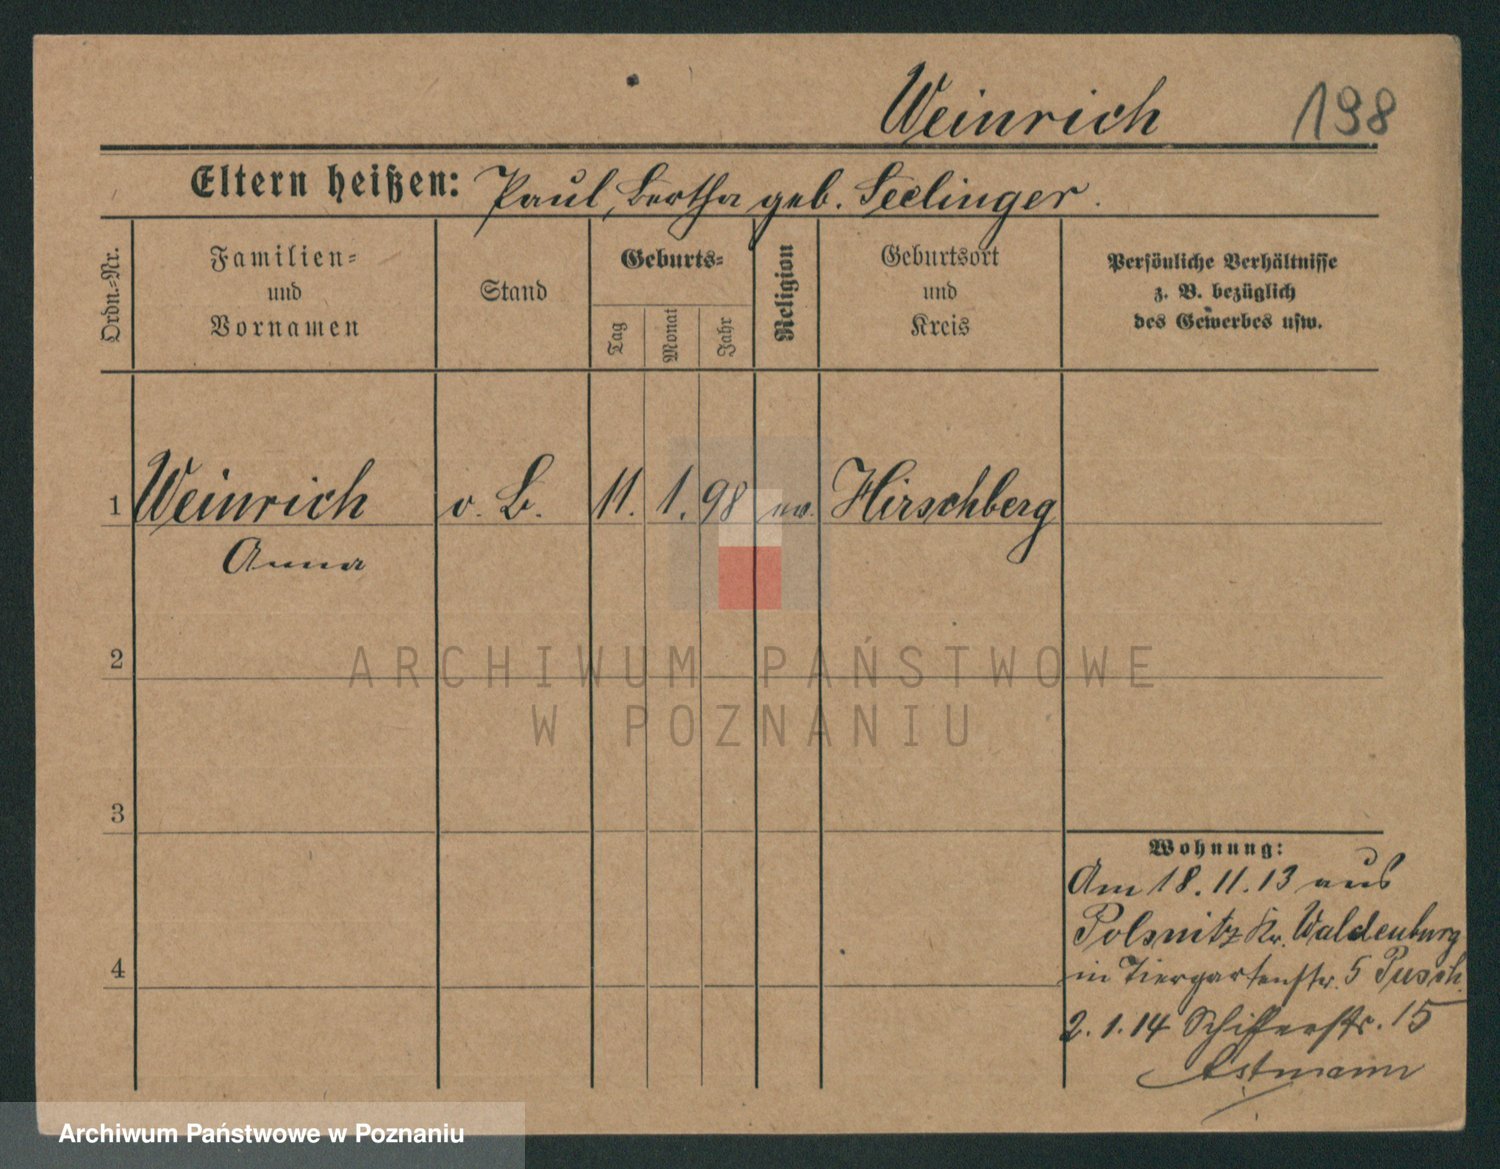 Weinrich 198
Eltern heißen: Paul, Bertha geb. Seelinger.
Ordn.-Nr.
Familien-
und
Vornamen
Stand
Geburts-
Tag
Monat
Jahr
Religion
Geburtsort
und
Kreis
Persönliche Verhältnisse
z. B. bezüglich
des Gewerbes usw.
1 Weinrich o. B. 11. 1. 98 ev. Hirschberg
Anna
2
ARCHIWUM PAŃSTWOWE
W POZNANIU
3
Wohnung:
Am 18.11.13 aus
Polsnitz Kr. Waldenburg
4
in Tiergartenstr. 5 Pusch.
2.1.14 Schifferstr. 15
Astmann
Archiwum Państwowe w Poznaniu